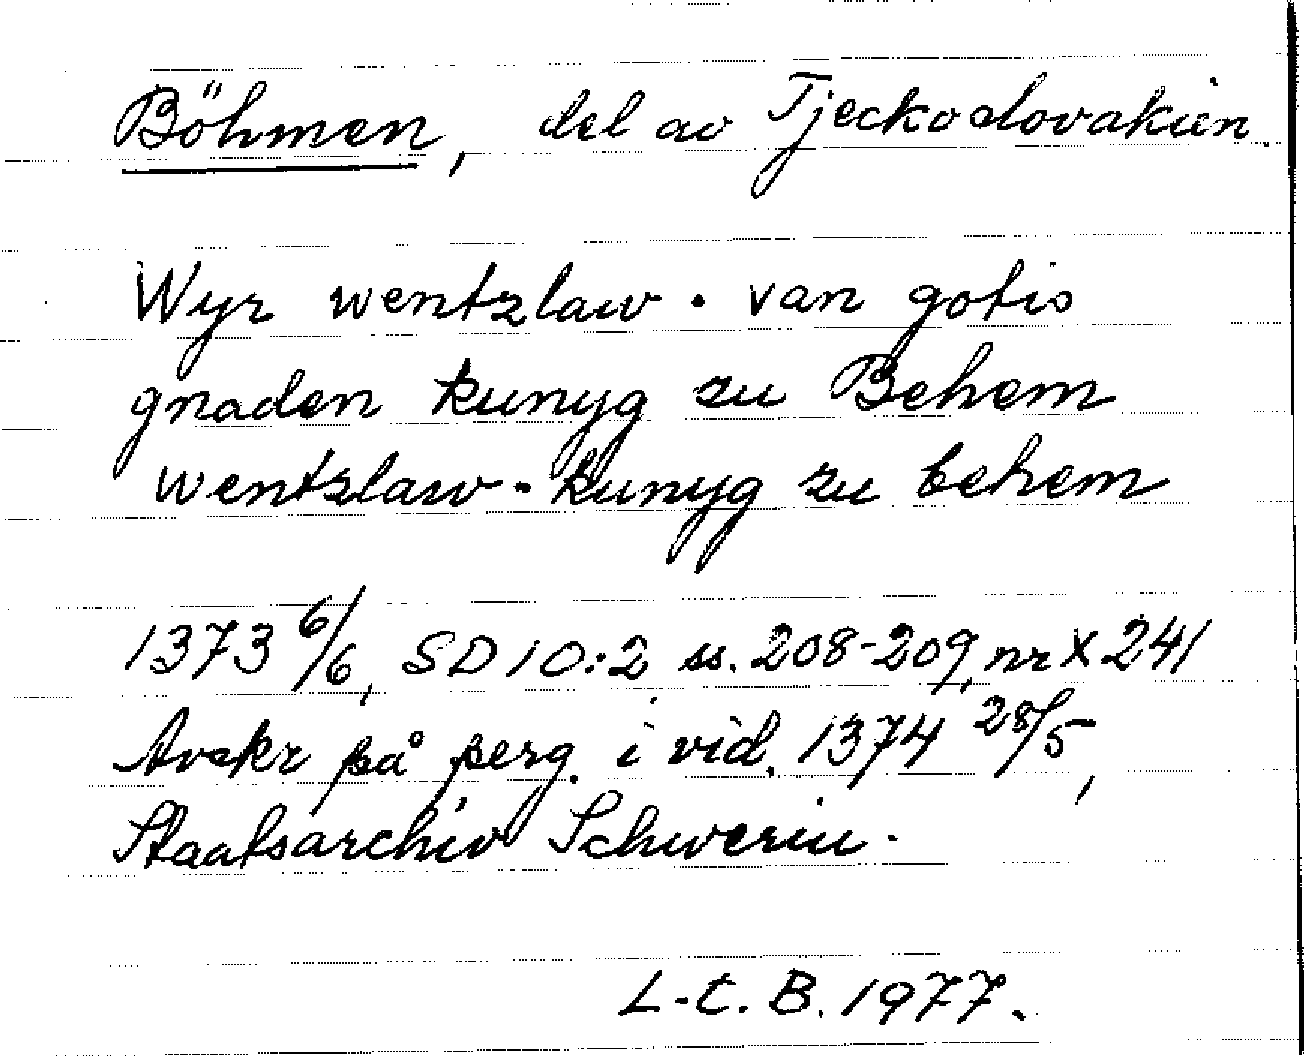 Böhmen, del av Tjeckoslovakien.
Wyr wentzlaw. van gotis
gnaden kunyg zu Behem
wentzlaw. kunyg zu behem
1373 6/6, SD 10:2 ss. 208-209, nr X 241
Avskr på perg. i vid. 1374 28/5,
Staatsarchiv Schwerin.
L-C. B. 1977.